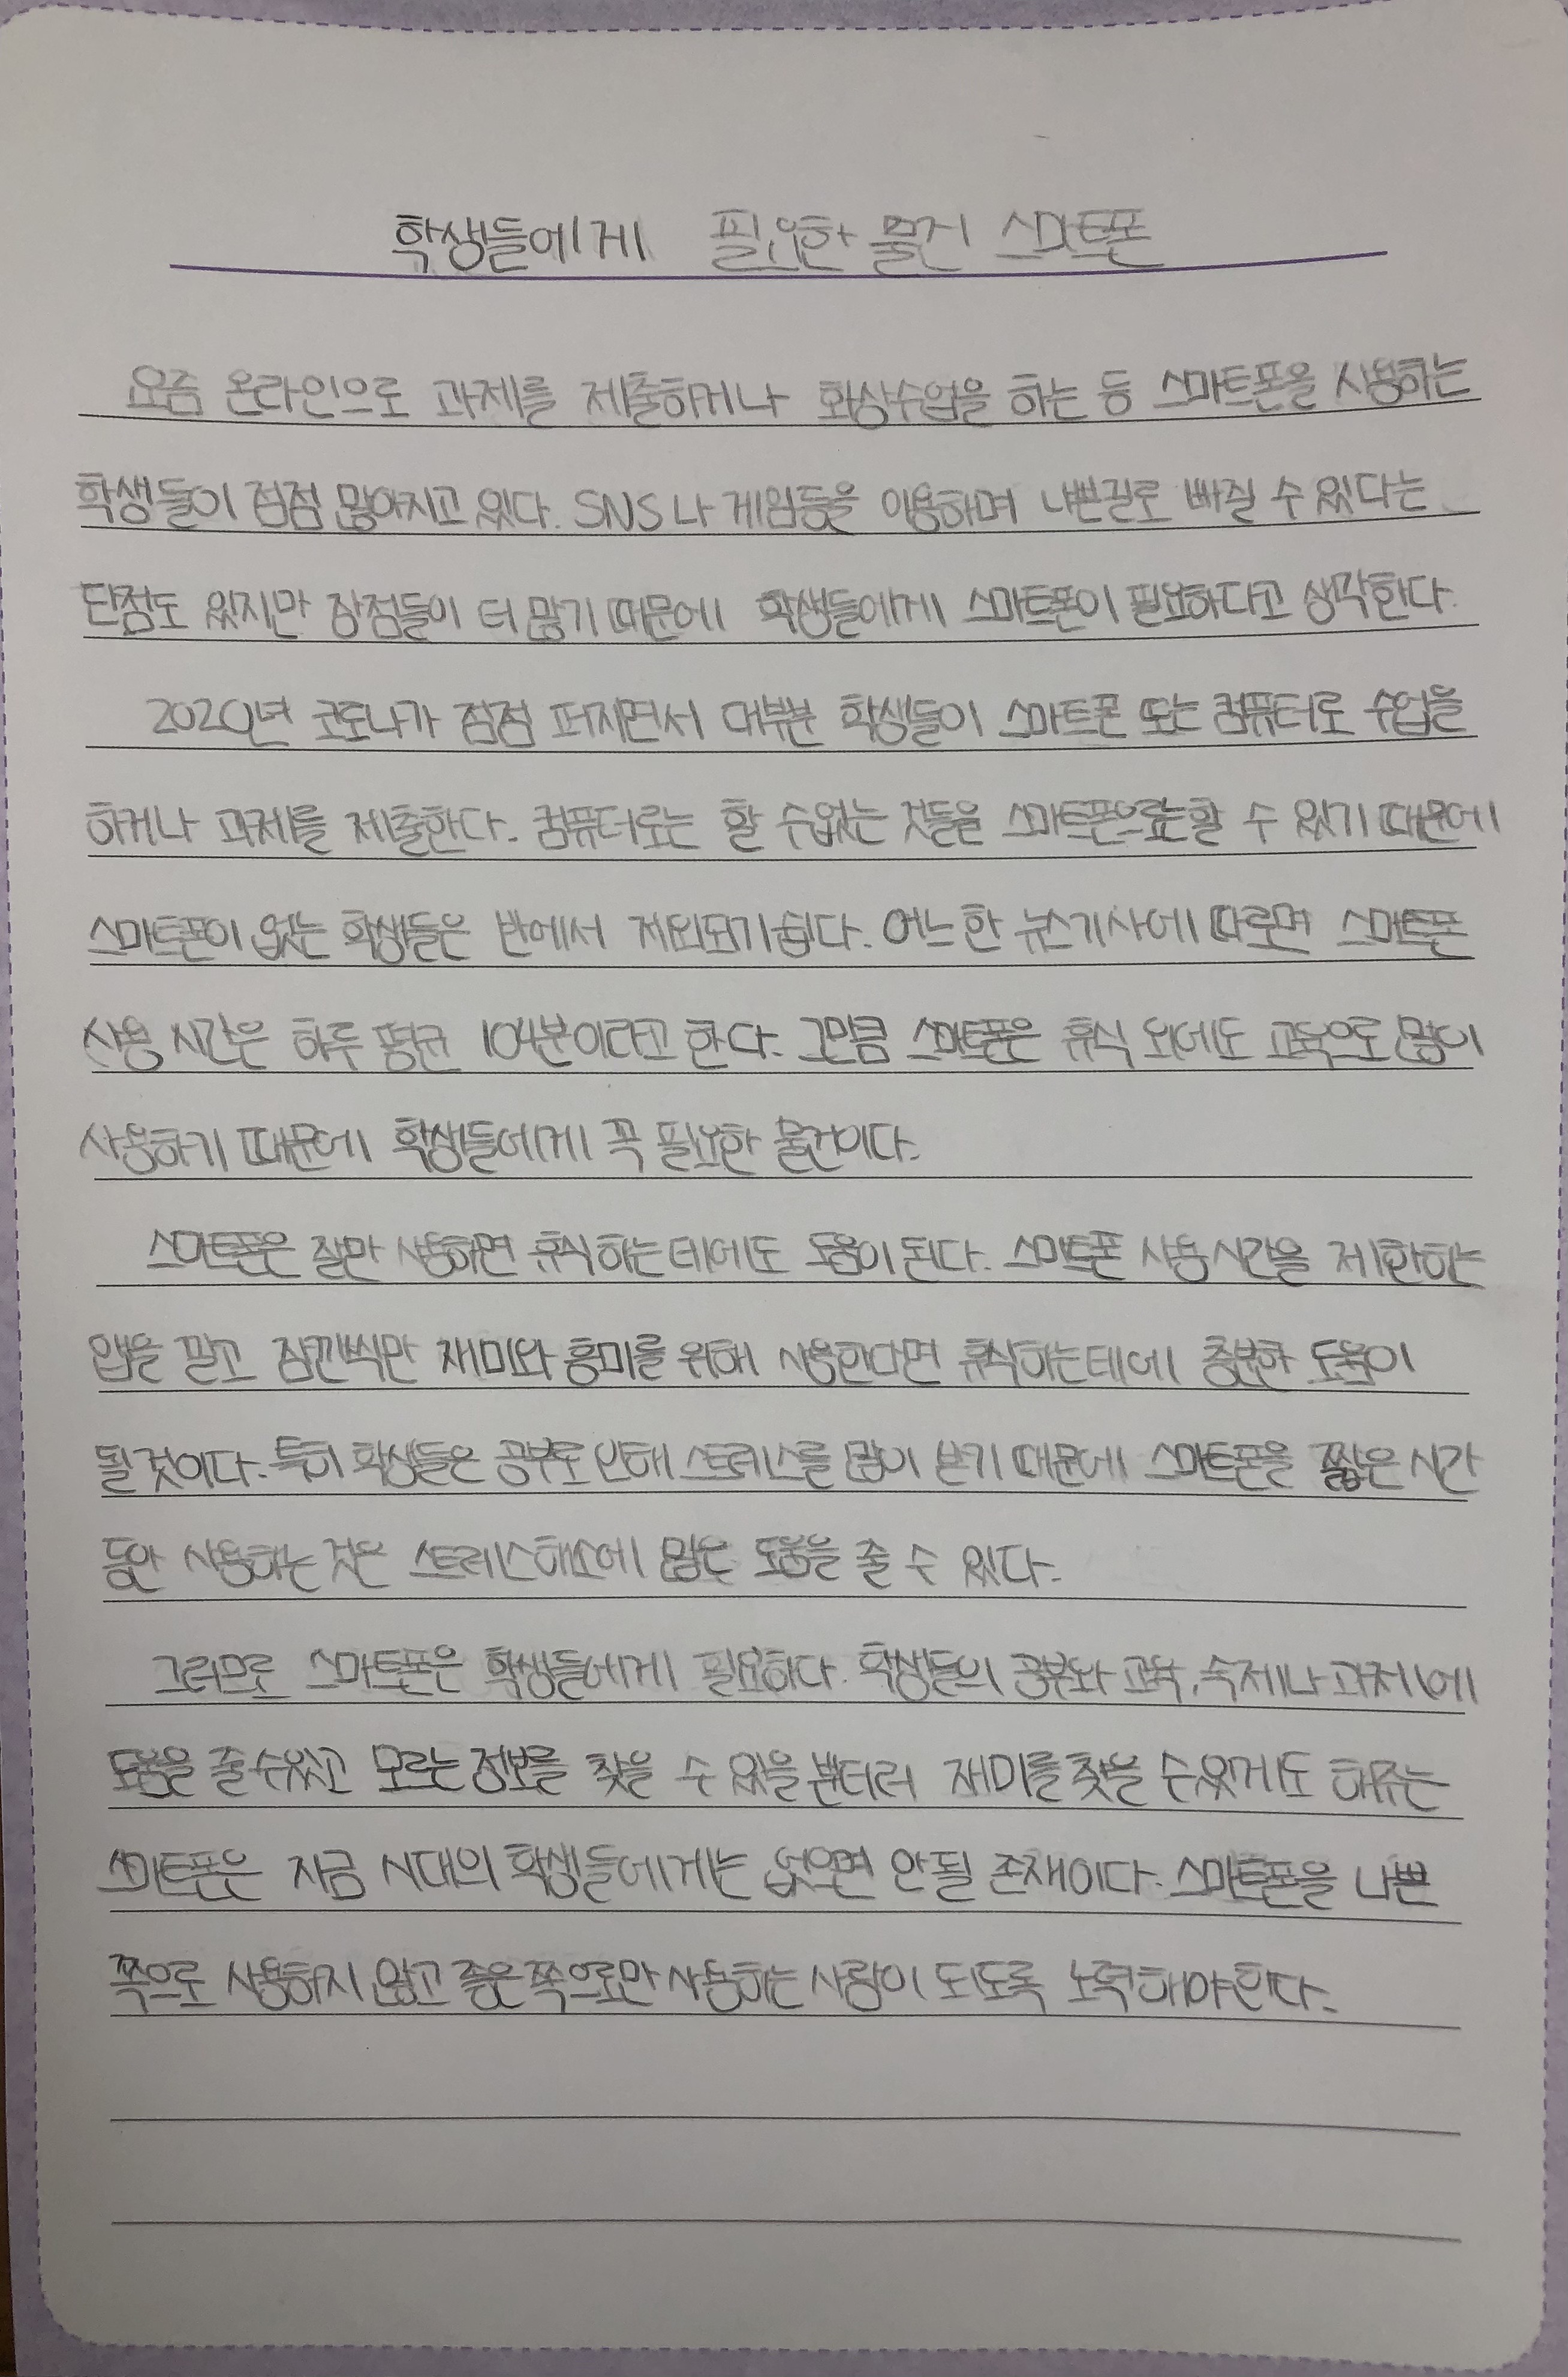 학생들에게 필요한 물건 스마트폰
요즘 온라인으로 과제를 제출하거나 화상수업을 하는 등 스마트폰을 사용하는
학생들이 점점 많아지고 있다. SNS나 게임등을 이용하며 나쁜길로 빠질 수 있다는
단점도 있지만 장점들이 더 많기 때문에 학생들에게 스마트폰이 필요하다고 생각한다.
2020년 코로나가 점점 퍼지면서 대부분 학생들이 스마트폰 또는 컴퓨터로 수업을
하거나 과제를 제출한다. 컴퓨터로는 할 수없는 것들을 스마트폰으로는할 수 있기 때문에
스마트폰이 없는 학생들은 반에서 제외되기쉽다. 어느 한 뉴스기사에 따르면 스마트폰
사용 시간은 하루 평균 104분이라고 한다. 그만큼 스마트폰은 휴식 외에도 교육으로 많이
사용하기 때문에 학생들에게 꼭 필요한 물건이다.
스마트폰은 잘만 사용하면 휴식하는데에도 도움이 된다. 스마트폰 사용시간을 제한하는
앱을 깔고 잠깐씩만 재미와 흥미를 위해 사용한다면 휴식하는데에 충분한 도움이
될 것이다. 특히 학생들은 공부로 인해 스트레스를 많이 받기 때문에 스마트폰을 짧은 시간
동안 사용하는 것은 스트레스해소에 많은 도움을 줄 수 있다.
그러므로 스마트폰은 학생들에게 필요하다. 학생들의 공부와 교육, 숙제나 과제에
도움을 줄수있고 모르는 정보를 찾을 수 있을 뿐더러 재미를 찾을 수있게도 해주는
스마트폰은 지금 시대의 학생들에게는 없으면 안될 존재이다. 스마트폰을 나쁜
쪽으로 사용하지 않고 좋은 쪽으로만 사용하는 사람이 되도록 노력해야한다.